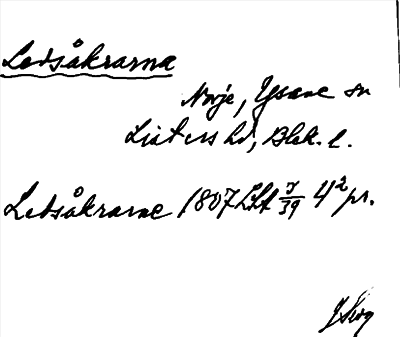 Ledsåkrarna
Norje, Ysane sn
Listers hd, Blek. l.
Ledsåkrarne 1807 LSA J/39 4² pr.